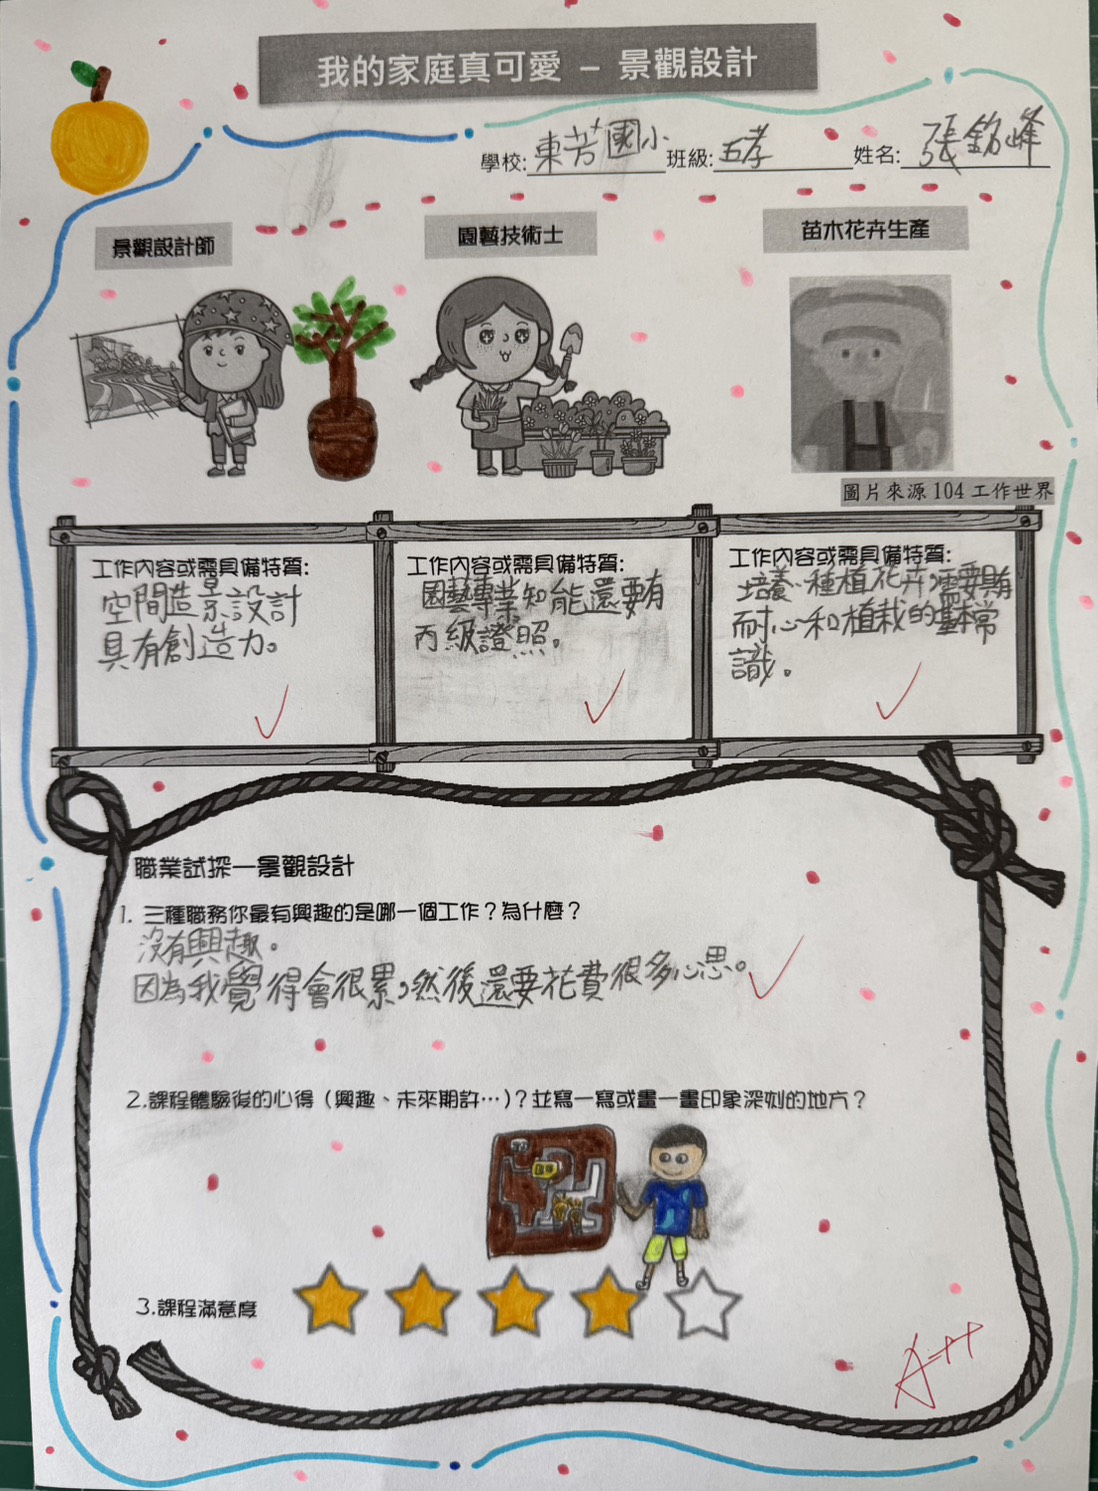 我的家庭真可愛 – 景觀設計
學校:東芳國小 班級:五孝 姓名:張銘峰
景觀設計師
園藝技術士
苗木花卉生產
圖片來源 104 工作世界
工作內容或需具備特質:
空間造景設計
具有創造力。
工作內容或需具備特質:
園藝專業知能還要有
丙級證照。
工作內容或需具備特質:
培養、種植花卉,需要有
耐心和植栽的基本常
識。
職業試探—景觀設計
1. 三種職務你最有興趣的是哪一個工作？為什麼？
沒有興趣。
因為我覺得會很累,然後還要花費很多心思。
2.課程體驗後的心得（興趣、未來期許…)？並寫一寫或畫一畫印象深刻的地方？
3.課程滿意度
A++